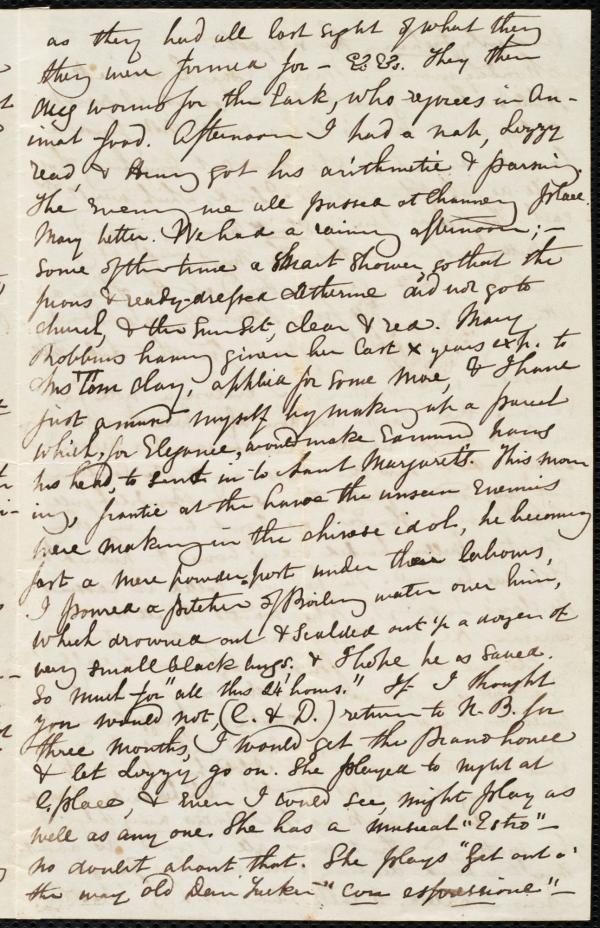 as they had all lost sight of what they
they were formed for — &c &c. They then
dug worms for the Lark, who rejoices in An-
imal food. Afternoon I had a nap, Lizzy
read, & Henry got his arithmetic & parsing.
The Evening we all passed at Chauncy place.
Mary better. We had a rainy afternoon; —
some of the time a smart shower, so that the
pious & ready-dressed Catherine did not go to
church, & the sun set, clear & red. Mary
Robbins having given her last x years exp. to
Miss Tom Clary, applied for some more, & I have
just amused myself by making up a parcel
which, for Elegance, would make Edmund hang
his head, to send in to Aunt Margaret's. This morn
ing, frantic at the havoc the unseen Enemies
were making in the chinese idol, he becoming
fast a mere powder-post under their labours,
I poured a Pitcher of Boiling water over him,
which drowned out & scalded out ½ a dozen of
very small black bugs, & I hope he is saved.
So much for "all this 24 hours." If I thought
you would not, (C. & D.) return to N. B. for
three months, I would get the Piano house
& let Lizzy go on. She played to night at
C. place, & even I could see, might play as
well as any one. She has a musical "Estro" —
no doubt about that. She plays "Get out o'
the way old Dan Tucker" "con espressione" —